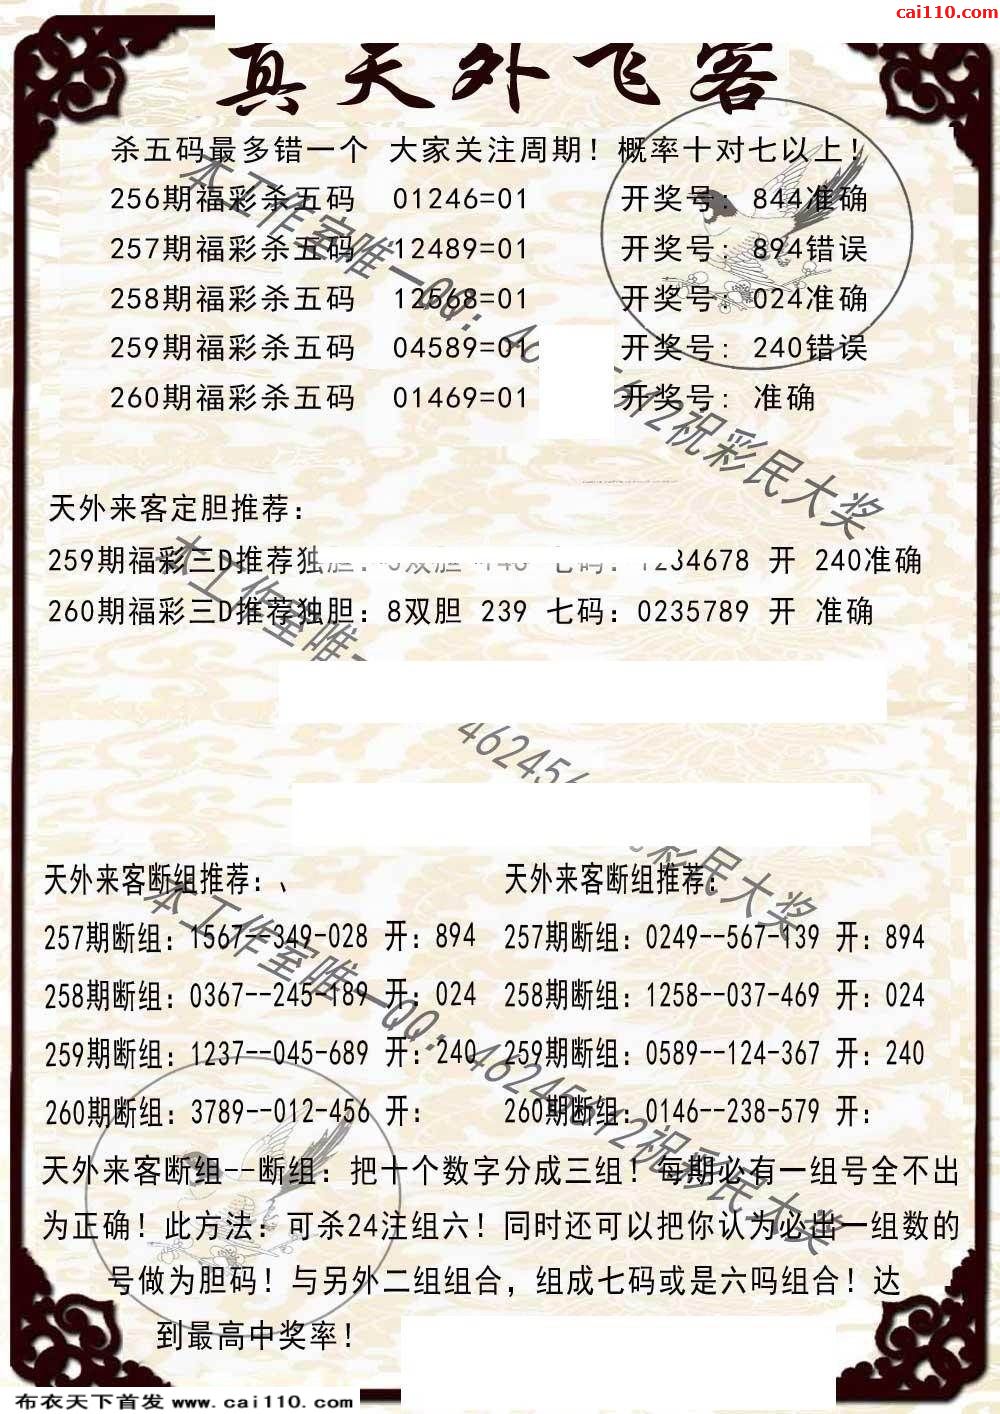 cai110.com
真天外飞客
杀五码最多错一个 大家关注周期！概率十对七以上！
256期福彩杀五码 01246=01 开奖号: 844准确
257期福彩杀五码 12489=01 开奖号: 894错误
258期福彩杀五码 12568=01 开奖号: 024准确
259期福彩杀五码 04589=01 开奖号: 240错误
260期福彩杀五码 01469=01 开奖号: 准确
天外来客定胆推荐：
259期福彩三D推荐独胆： 双胆 七码：1234678 开 240准确
260期福彩三D推荐独胆：8双胆 239 七码：0235789 开 准确
天外来客断组推荐：、
257期断组：1567--349-028 开：894
258期断组：0367--245-189 开：024
259期断组：1237--045-689 开：240
260期断组：3789--012-456 开：
天外来客断组推荐：
257期断组：0249--567-139 开：894
258期断组：1258--037-469 开：024
259期断组：0589--124-367 开：240
260期断组：0146--238-579 开：
天外来客断组--断组：把十个数字分成三组！每期必有一组号全不出
为正确！此方法：可杀24注组六！同时还可以把你认为必出一组数的
号做为胆码！与另外二组组合，组成七码或是六吗组合！达
到最高中奖率！
本工作室唯一QQ：46 5612祝彩民大奖
本工作室唯一 46245 彩民大奖
本工作室唯一QQ：46245612祝彩民大奖
布衣天下首发 www.cai110.com